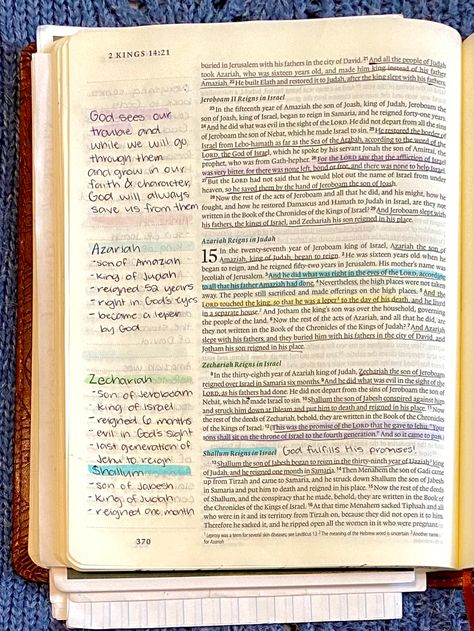 2 KINGS 14:21
God sees our
trouble and
while we will go
through them
and grow in our
faith & character,
God will always
save us from them
Azariah
- son of Amaziah
- king of Judah
- reigned 52 years
- right in God's eyes
- became a leper
by God
Zechariah
- son of Jeroboam
- king of Israel
- reigned 6 months
- evil in God's sight
- last generation of
Jehu to reign
Shallum
- son of Jabesh
- king of Judah
- reigned one month
buried in Jerusalem with his fathers in the city of David. 21 And all the people of Judah
took Azariah, who was sixteen years old, and made him king instead of his father
Amaziah. 22 He built Elath and restored it to Judah, after the king slept with his fathers.
Jeroboam II Reigns in Israel
23 In the fifteenth year of Amaziah the son of Joash, king of Judah, Jeroboam the
son of Joash, king of Israel, began to reign in Samaria, and he reigned forty-one years.
24 And he did what was evil in the sight of the LORD. He did not depart from all the sins
of Jeroboam the son of Nebat, which he made Israel to sin. 25 He restored the border of
Israel from Lebo-hamath as far as the Sea of the Arabah, according to the word of the
LORD, the God of Israel, which he spoke by his servant Jonah the son of Amittai, the
prophet, who was from Gath-hepher. 26 For the LORD saw that the affliction of Israel
was very bitter, for there was none left, bond or free, and there was none to help Israel.
27 But the LORD had not said that he would blot out the name of Israel from under
heaven, so he saved them by the hand of Jeroboam the son of Joash.
28 Now the rest of the acts of Jeroboam and all that he did, and his might, how he
fought, and how he restored Damascus and Hamath to Judah in Israel, are they not
written in the Book of the Chronicles of the Kings of Israel? 29 And Jeroboam slept with
his fathers, the kings of Israel, and Zechariah his son reigned in his place.
Azariah Reigns in Judah
15 In the twenty-seventh year of Jeroboam king of Israel, Azariah the son of
Amaziah, king of Judah, began to reign. 2 He was sixteen years old when he
began to reign, and he reigned fifty-two years in Jerusalem. His mother's name was
Jecoliah of Jerusalem. 3 And he did what was right in the eyes of the LORD, according
to all that his father Amaziah had done. 4 Nevertheless, the high places were not taken
away. The people still sacrificed and made offerings on the high places. 5 And the
LORD touched the king, so that he was a leper1 to the day of his death, and he lived
in a separate house.2 And Jotham the king's son was over the household, governing
the people of the land. 6 Now the rest of the acts of Azariah, and all that he did, are
they not written in the Book of the Chronicles of the Kings of Judah? 7 And Azariah
slept with his fathers, and they buried him with his fathers in the city of David, and
Jotham his son reigned in his place.
Zechariah Reigns in Israel
8 In the thirty-eighth year of Azariah king of Judah, Zechariah the son of Jeroboam
reigned over Israel in Samaria six months. 9 And he did what was evil in the sight of the
LORD, as his fathers had done. He did not depart from the sins of Jeroboam the son of
Nebat, which he made Israel to sin. 10 Shallum the son of Jabesh conspired against him
and struck him down at Ibleam and put him to death and reigned in his place. 11 Now
the rest of the deeds of Zechariah, behold, they are written in the Book of the Chronicles
of the Kings of Israel. 12 (This was the promise of the LORD that he gave to Jehu, "Your
sons shall sit on the throne of Israel to the fourth generation." And so it came to pass.)
Shallum Reigns in Israel God fulfills His promises!
13 Shallum the son of Jabesh began to reign in the thirty-ninth year of Uzziah3 king
of Judah, and he reigned one month in Samaria. 14 Then Menahem the son of Gadi came
up from Tirzah and came to Samaria, and he struck down Shallum the son of Jabesh
in Samaria and put him to death and reigned in his place. 15 Now the rest of the deeds
of Shallum, and the conspiracy that he made, behold, they are written in the Book of
the Chronicles of the Kings of Israel. 16 At that time Menahem sacked Tiphsah and all
who were in it and its territory from Tirzah on, because they did not open it to him.
Therefore he sacked it, and he ripped open all the women in it who were pregnant.
1 Leprosy was a term for several skin diseases; see Leviticus 13 2 The meaning of the Hebrew word is uncertain 3 Another name
for Azariah
370